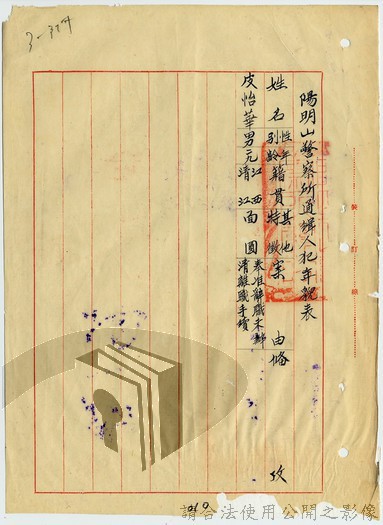 陽明山警察所通緝人犯年貌表
姓名 性別 年齡 籍貫 其他特徵 案由 備攷
皮怡華 男 江西 面圓 未准辭職未辦清離職手續
裝 訂 線
3-374
請合法使用公開之影像